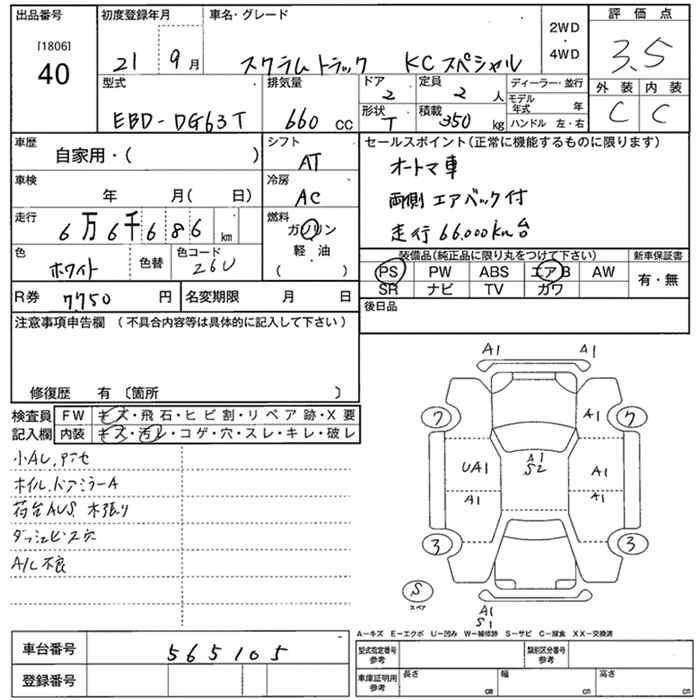 出品番号 初度登録年月 車名・グレード 2WD・4WD 評価点
[1806]
40
21 9月 スクラムトラック KCスペシャル 3.5
型式 排気量 ドア 定員 ディーラー・並行 外装 内装
EBD-DG63T 660cc 2 2人 モデル年式 年 C C
形状 積載 ハンドル 左・右
T 350kg
車歴 自家用・( ) シフト セールスポイント(正常に機能するものに限ります)
AT オートマ車
車検 年 月( 日) 冷房
AC 両側エアバック付
走行 6万6千686km 燃料 走行66.000Km台
ガソリン
軽・油
( )
色 ホワイト 色替 色コード 26U 装備品(純正品に限り丸をつけて下さい) 新車保証書
PS PW ABS エアB AW 有・無
SR ナビ TV カワ
R券 7750円 名変期限 月 日 後日品
注意事項申告欄 (不具合内容等は具体的に記入して下さい)
修復歴 有 〔箇所 〕
検査員 FW キズ・飛石・ヒビ割・リペア跡・X要
記入欄 内装 キズ・汚レ・コゲ・穴・スレ・キレ・破レ
小AU,
ホイル,ドアミラーA
荷台AUS 木張り
ダッシュビス穴
A/C不良
A1 A1
7 A1 7
UA1 A1 S2 A1
A1 A1
3 3
S
スペア
A1
S1
A−キズ E−エクボ U−凹み W−補修跡 S−サビ C−腐食 XX−交換済
車台番号 565105 型式指定番号 参考 類別区分番号 参考
登録番号 車庫証明用 参考 長さ cm 幅 cm 高さ cm